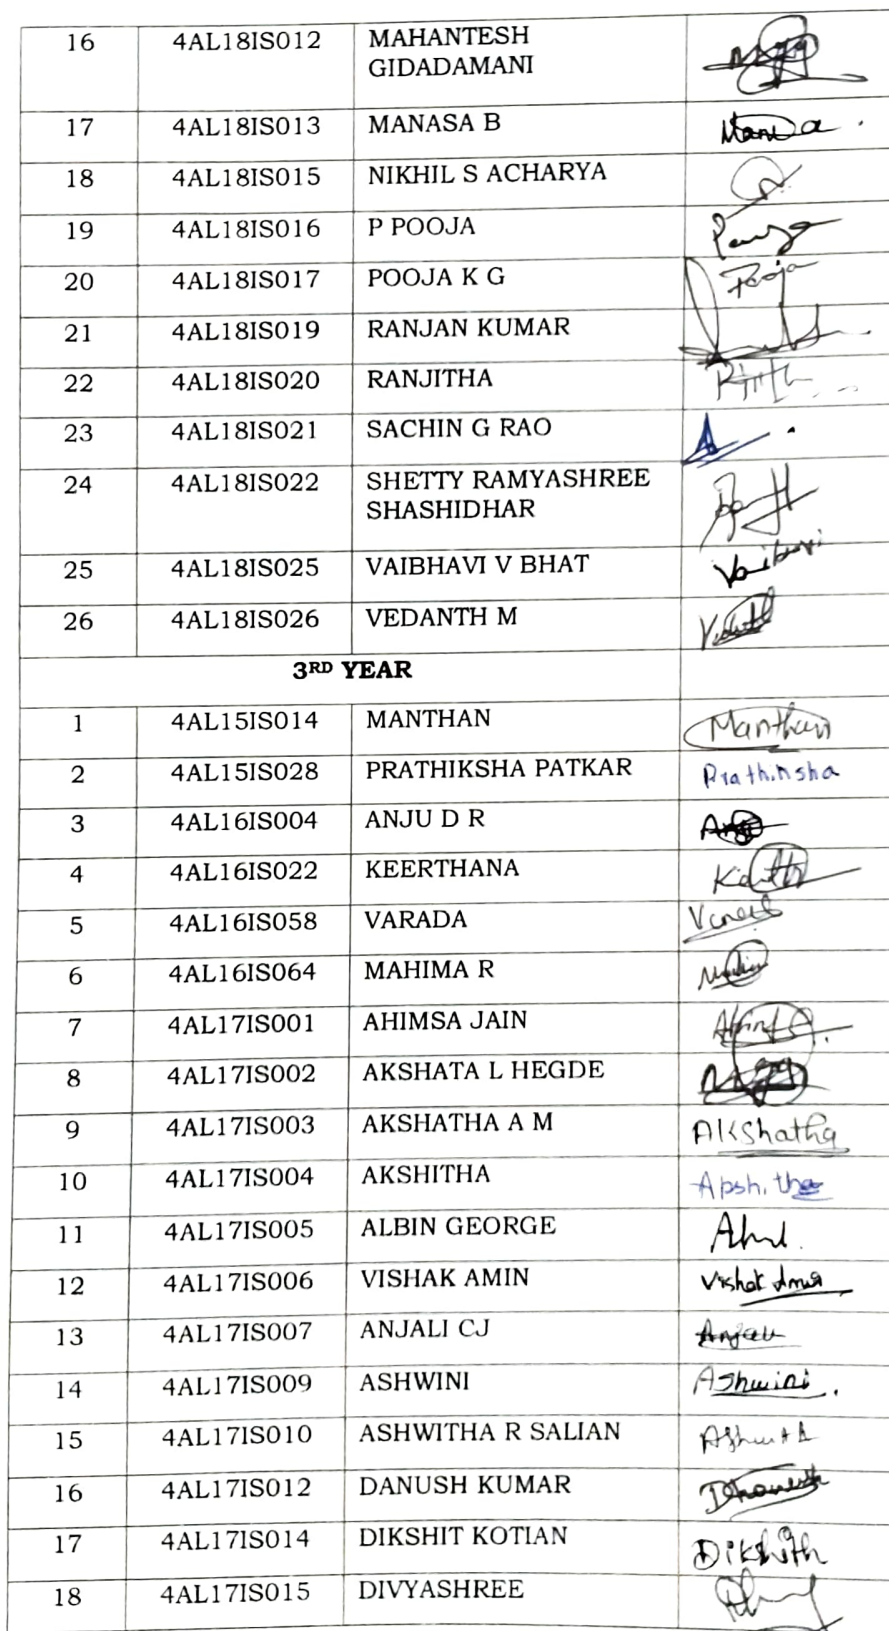 16 4AL18IS012 MAHANTESH
GIDADAMANI
17 4AL18IS013 MANASA B
18 4AL18IS015 NIKHIL S ACHARYA
19 4AL18IS016 P POOJA
20 4AL18IS017 POOJA K G Pooja
21 4AL18IS019 RANJAN KUMAR
22 4AL18IS020 RANJITHA
23 4AL18IS021 SACHIN G RAO
24 4AL18IS022 SHETTY RAMYASHREE
SHASHIDHAR
25 4AL18IS025 VAIBHAVI V BHAT
26 4AL18IS026 VEDANTH M
3RD YEAR
1 4AL15IS014 MANTHAN Manthan
2 4AL15IS028 PRATHIKSHA PATKAR
3 4AL16IS004 ANJU D R
4 4AL16IS022 KEERTHANA
5 4AL16IS058 VARADA
6 4AL16IS064 MAHIMA R
7 4AL17IS001 AHIMSA JAIN
8 4AL17IS002 AKSHATA L HEGDE
9 4AL17IS003 AKSHATHA A M AKShatha
10 4AL17IS004 AKSHITHA
11 4AL17IS005 ALBIN GEORGE
12 4AL17IS006 VISHAK AMIN
13 4AL17IS007 ANJALI CJ
14 4AL17IS009 ASHWINI Ashwini.
15 4AL17IS010 ASHWITHA R SALIAN
16 4AL17IS012 DANUSH KUMAR
17 4AL17IS014 DIKSHIT KOTIAN Dikshith
18 4AL17IS015 DIVYASHREE